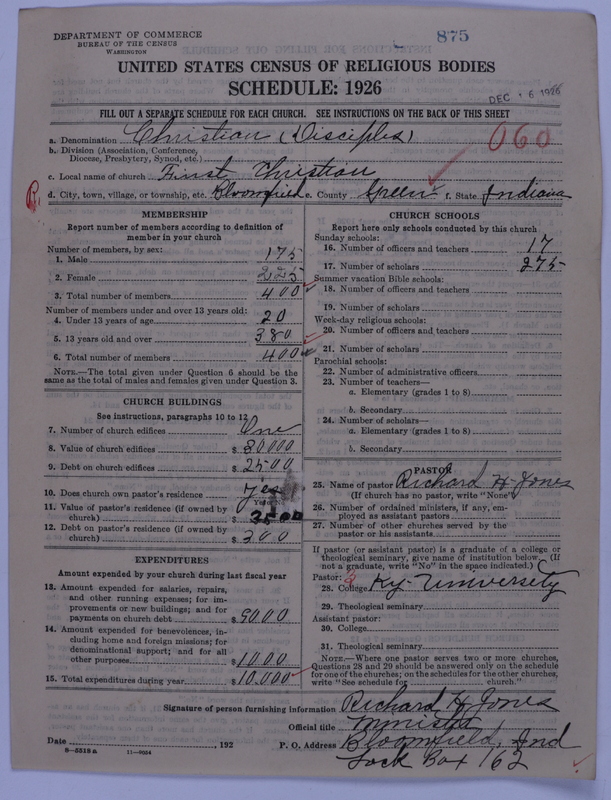 875
DEPARTMENT OF COMMERCE
BUREAU OF THE CENSUS
WASHINGTON
UNITED STATES CENSUS OF RELIGIOUS BODIES
SCHEDULE: 1926
DEC 16 1926
FILL OUT A SEPARATE SCHEDULE FOR EACH CHURCH. SEE INSTRUCTIONS ON THE BACK OF THIS SHEET
a. Denomination Christian (Disciples) 060
b. Division (Association, Conference,
Diocese, Presbytery, Synod, etc.)
c. Local name of church First Christian
R d. City, town, village, or township, etc. Bloomfield e. County Green f. State Indiana
MEMBERSHIP
Report number of members according to definition of
member in your church
Number of members, by sex:
1. Male 175
2. Female 225
3. Total number of members 400
Number of members under and over 13 years old:
4. Under 13 years of age 20
5. 13 years old and over 380
6. Total number of members 400
NOTE.—The total given under Question 6 should be the
same as the total of males and females given under Question 3.
CHURCH BUILDINGS
See instructions, paragraphs 10 to 12
7. Number of church edifices One
8. Value of church edifices $ 30000
9. Debt on church edifices $ 2500
10. Does church own pastor's residence Yes
11. Value of pastor's residence (if owned by
church) $ 3500
12. Debt on pastor's residence (if owned by
church) $ 200
EXPENDITURES
Amount expended by your church during last fiscal year
13. Amount expended for salaries, repairs,
and other running expenses; for im-
provements or new buildings; and for
payments on church debt $ 9000
14. Amount expended for benevolences, in-
cluding home and foreign missions; for
denominational support; and for all
other purposes $ 1000
15. Total expenditures during year $ 10.000
CHURCH SCHOOLS
Report here only schools conducted by this church
Sunday schools:
16. Number of officers and teachers 17
17. Number of scholars 275
Summer vacation Bible schools:
18. Number of officers and teachers
19. Number of scholars
Week-day religious schools:
20. Number of officers and teachers
21. Number of scholars
Parochial schools:
22. Number of administrative officers
23. Number of teachers—
a. Elementary (grades 1 to 8)
b. Secondary
24. Number of scholars—
a. Elementary (grades 1 to 8)
b. Secondary
PASTOR
25. Name of pastor Richard H. Jones
(If church has no pastor, write "None")
26. Number of ordained ministers, if any, em-
ployed as assistant pastors
27. Number of other churches served by the
pastor or his assistants
If pastor (or assistant pastor) is a graduate of a college or
theological seminary, give name of institution below. (If
not a graduate, write "No" in the space indicated.)
Pastor:
28. College Ky. University
29. Theological seminary
Assistant pastor:
30. College
31. Theological seminary
NOTE.—Where one pastor serves two or more churches,
Questions 28 and 29 should be answered only on the schedule
for one of the churches; on the schedules for the other churches,
write "See schedule for church."
Signature of person furnishing information Richard H. Jones
Official title Minister
Date , 192 P. O. Address Bloomfield, Ind
8-5518 a 11-9034 Lock Box 162